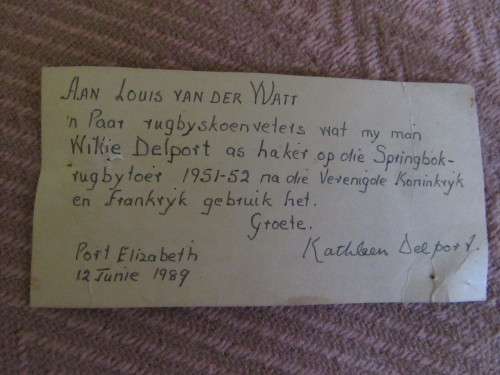 AAN LOUIS VAN DER WATT
'n Paar rugbyskoenveters wat my man
Wilkie Delport as haker op die Springbok-
rugbytoer 1951-52 na die Verenigde Koninkryk
en Frankryk gebruik het.
Groete.
Kathleen Delport.
Port Elizabeth
12 Junie 1989